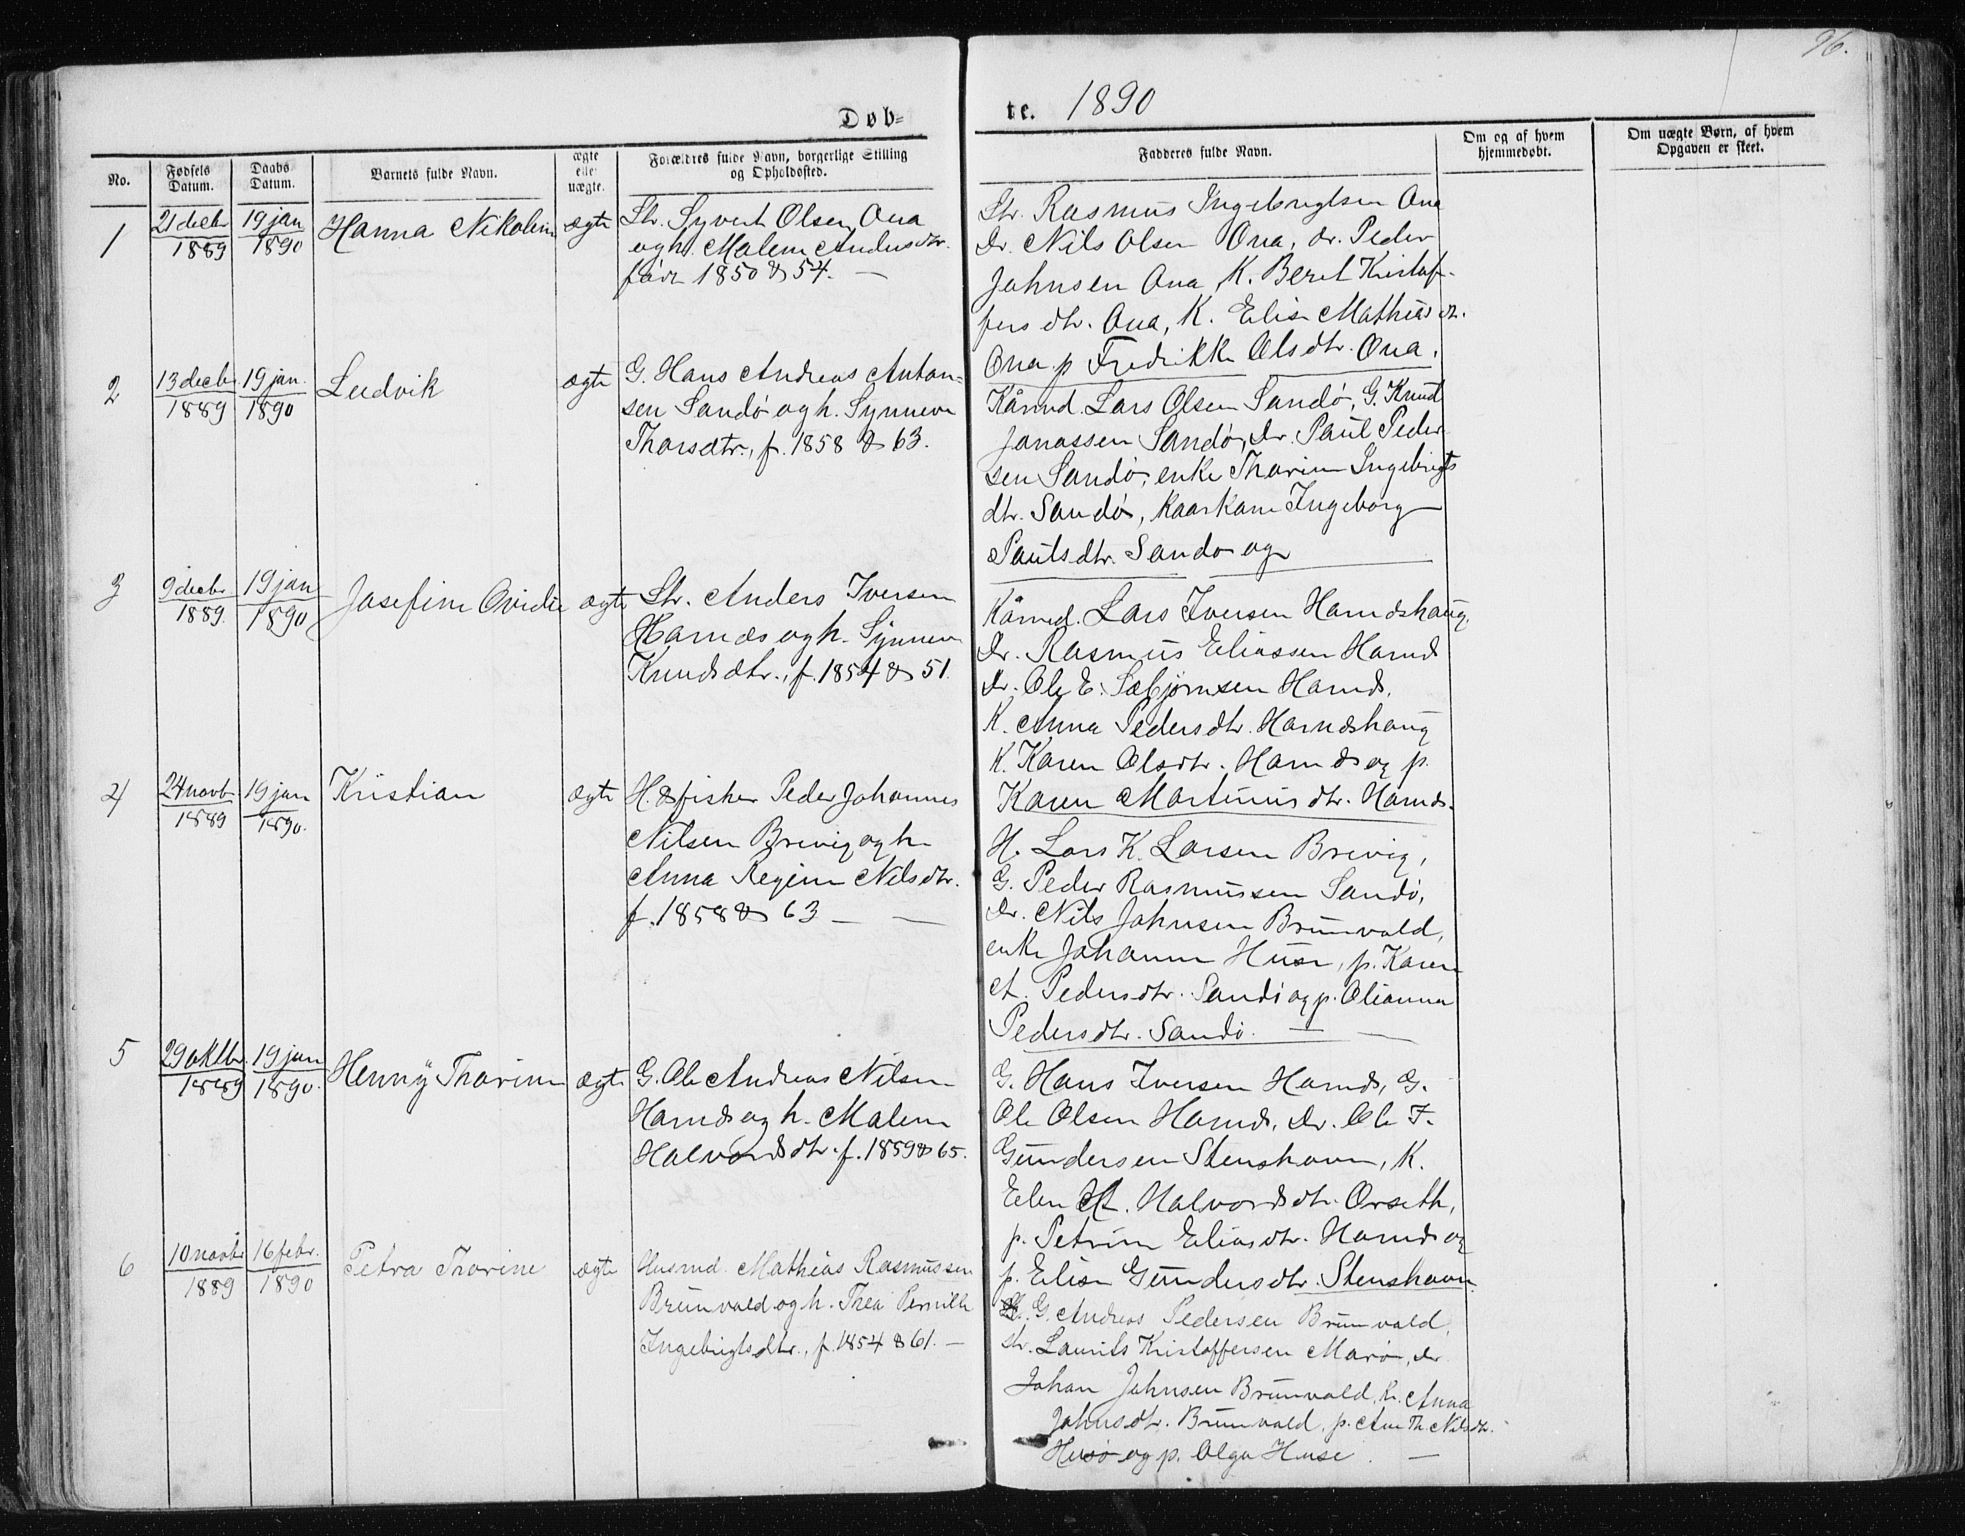 96.
Døb=
te. 1890
No.
Fødsels Datum.
Daabs Datum.
Barnets fulde Navn.
ægte eller uægte.
Forældres fulde Navn, borgerlige Stilling og Opholdssted.
Fadderes fulde Navn.
Om og af hvem hjemmedøbt.
Om uægte Børn, af hvem Opgaven er skeet.
1
21 decbr 1889
19 jan 1890
Hanna Nikoline
ægte
Str. Syvert Olsen Ona
og h. Malene Andersdtr.
født 1850 & 54. —
Str. Rasmus Ingebrigtsen Ona
Dr. Nils Olsen Ona, dr. Peder
Johnsen Ona, K. Beret Kristof-
fersdtr. Ona, K. Elise Mathiasdtr.
Ona p Fredrikke Olsdtr. Ona.
2
13 decbr. 1889
19 jan. 1890
Ludvik
ægte
G. Hans Andreas Anton=
sen Sandø og h. Synneve
Thorsdtr., f. 1858 & 63.
Kårmd. Lars Olsen Sandø, G. Knud
Jonassen Sandø, dr. Paul Peder
sen Sandø, enke Thorine Ingebrigts
dtr. Sandø, Kaarkone Ingeborg
Paulsdtr. Sandø og —
3
9 decbr 1889.
19 jan 1890
Josefine Ovidie
ægte
Str. Anders Iversen
Harnds og h. Synneve
Knudsdtr., f. 1854 & 51.
Kårmd. Lars Iversen Harndshaug,
Dr. Rasmus Eliassen Harnd
Dr. Ole E. Sæbjørnsen Harnds.
K. Anna Pedersdtr. Harndshaug
K. Karen Olsdtr. Harnds og p.
Karen Martinusdtr. Harnds.
4
24 novb. 1889
19 jan 1890.
Kristian
ægte
H. & fisker Peder Johannes
Nilsen Brevig og h.
Anna Regine Nilsdtr.
f. 1858 & 63 — —
H. Lars K. Larsen Brevig,
G. Peder Rasmussen Sandø,
Dr. Nils Johnsen Brunvold,
enke Johanne Huse, p. Karen
A. Pedersdtr. Sandø og p. Olianna
Pedersdtr. Sandø. — —
5
29 oktbr. 1889
19 jan 1890.
Henny Thorine
ægte
G. Ole Andreas Nilsen
Harnds og h. Malene
Halvordsdtr. f. 1859 & 65.
G. Hans Iversen Harnds, G.
Ole Olsen Harnds, Dr. Ole F.
Gundersen Stenshavn, K.
Elen A. Halvordsdtr. Orseth,
p. Petrine Eliasdtr. Harnds og
p. Elise Gundersdtr. Stenshavn.
6
10 novbr 1889
16 febr. 1890
Petra Thorine
ægte
Husmd. Mathias Rasmussen
Brunvold og h. Thea Pernille
Ingebrigtsdtr., f. 1854 & 61. —
G. Andreas Pedersen Brunvold,
str. Laurits Kristoffersen Marø, dr
Johan Johnsen Brunvold, K. Anna
Johnsdtr. Brunvold, p. Ane Th. Nilsdtr.
Husø og p. Olga Huse. —